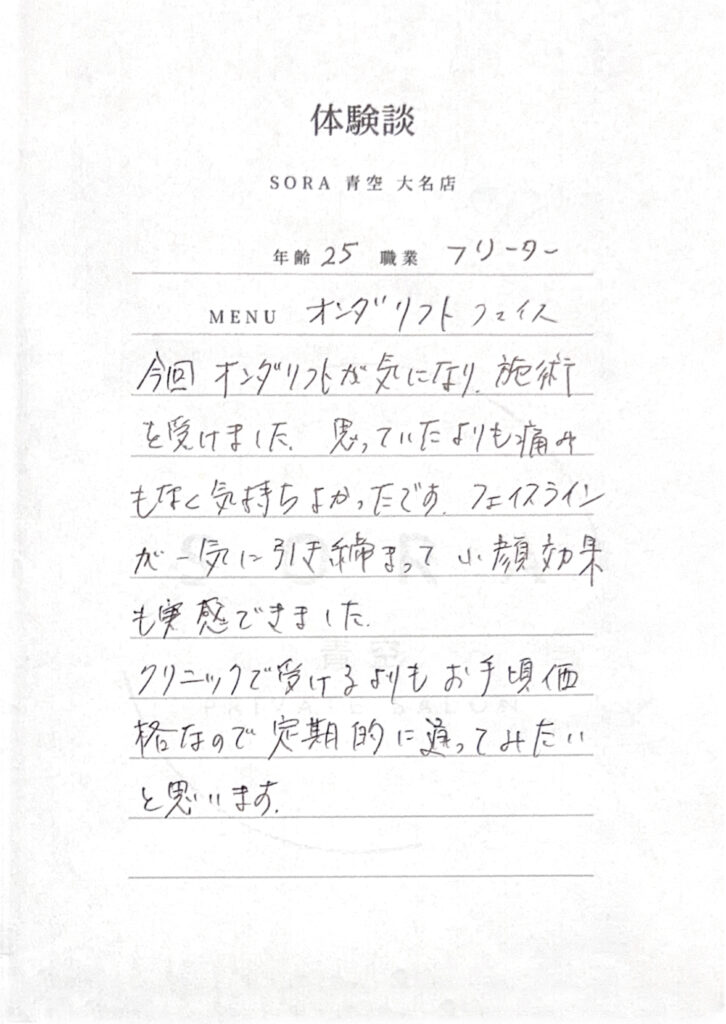 体験談
SORA 青空 大名店
年齢 25 職業 フリーター
MENU オンダリフト フェイス
今回 オンダリフトが気になり、施術
を受けました。思っていたよりも痛み
もなく気持ちよかったです。フェイスライン
が一気に引き締まって小顔効果
も実感できました。
クリニックで受けるよりもお手頃価
格なので定期的に通ってみたい
と思います。